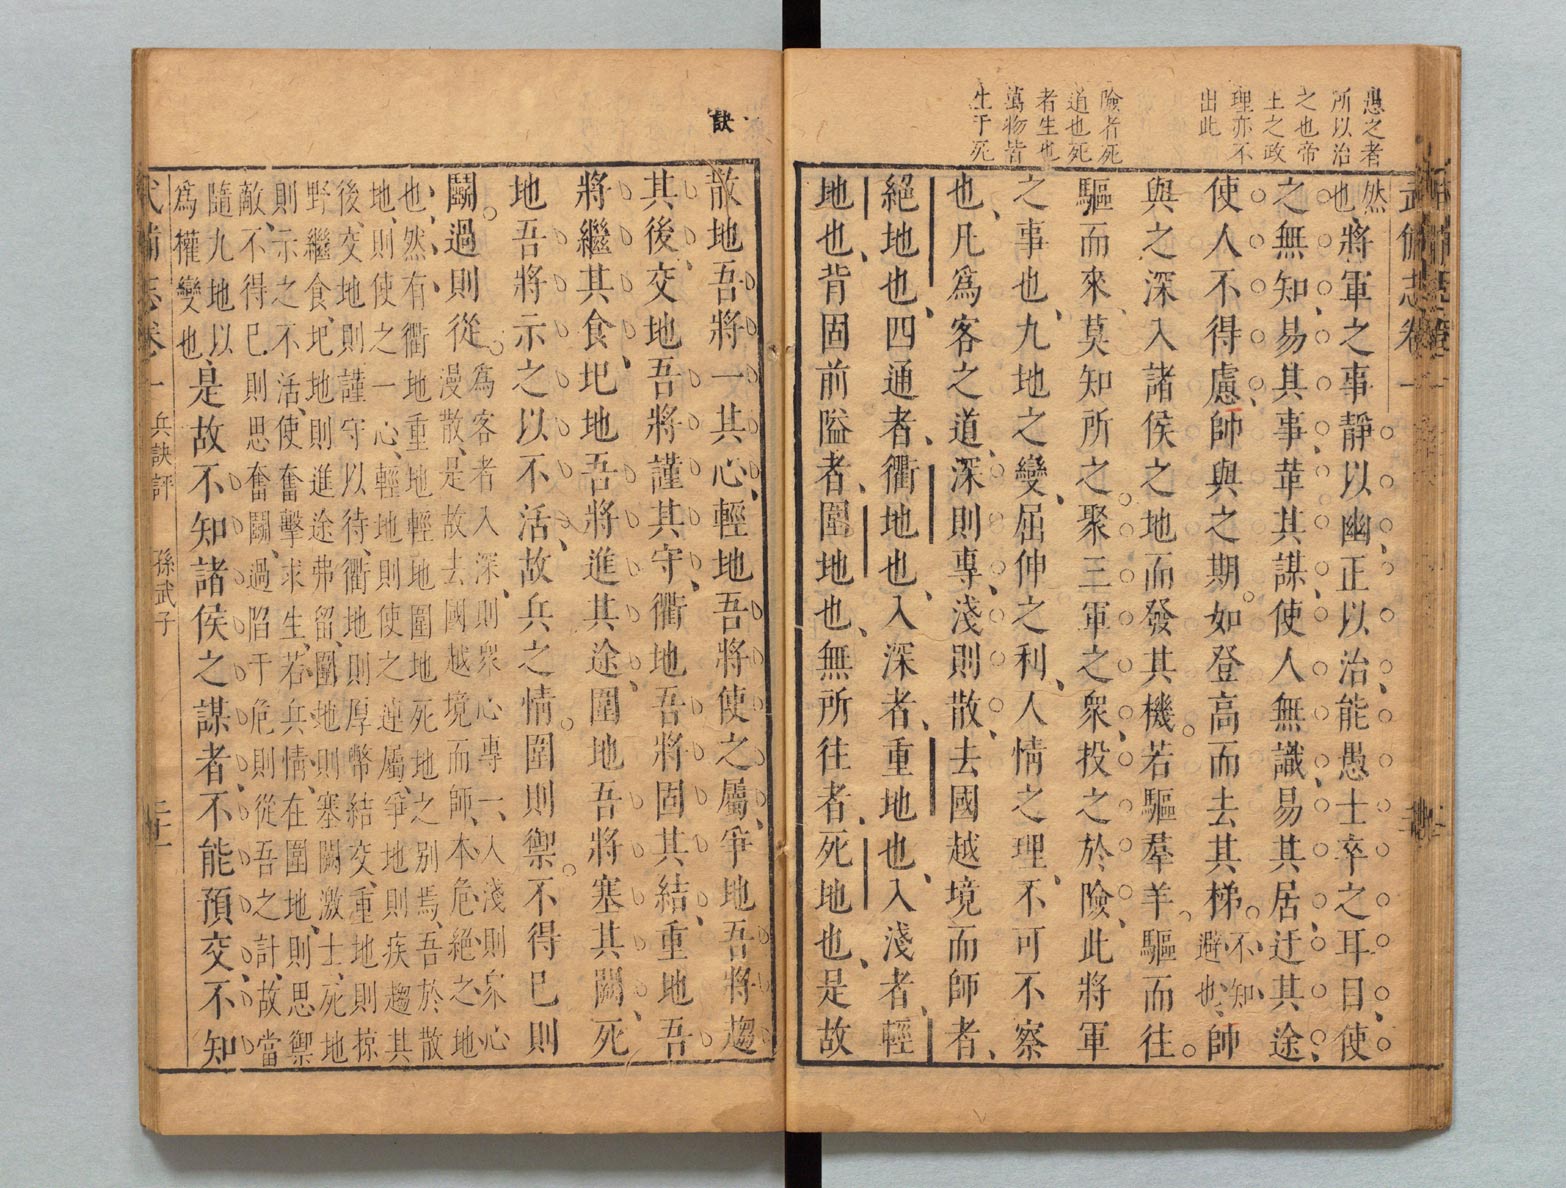 愚之者
所以治
之也帝
王之政
理亦不
出此
險者死
道也死
者生也
萬物皆
生于死
武備志卷一
然
也將軍之事靜以幽正以治能愚士卒之耳目使
之無知易其事革其謀使人無識易其居迂其途
使人不得慮師與之期如登高而去其梯不知避也師
與之深入諸侯之地而發其機若驅羣羊驅而往
驅而來莫知所之聚三軍之眾投之於險此將軍
之事也九地之變屈伸之利人情之理不可不察
也凡爲客之道深則專淺則散去國越境而師者
絕地也四通者衢地也入深者重地也入淺者輕
地也背固前隘者圍地也無所往者死地也是故
訣
散地吾將一其心輕地吾將使之屬爭地吾將趨
其後交地吾將謹其守衢地吾將固其結重地吾
將繼其食圯地吾將進其途圍地吾將塞其闕死
地吾將示之以不活故兵之情圍則禦不得已則
鬭過則從爲客者入深則眾心專一入淺則眾心
漫散是故去國越境而師本危絕之地
也然有衢地重地輕地圍地死地之別焉吾於散
地則使之一心輕地則使之連屬爭地則疾趨其
後交地則謹守以待衢地則厚幣結交重地則掠
野繼食圯地則進途弗留圍地則塞闕激士死地
則示之不活使奮擊求生若兵情在圍地則思禦
敵不得已則思奮鬭過陷于危則從吾之計故當
隨九地以
爲權變也是故不知諸侯之謀者不能預交不知
武備志卷一 兵訣評 孫武子 二十一